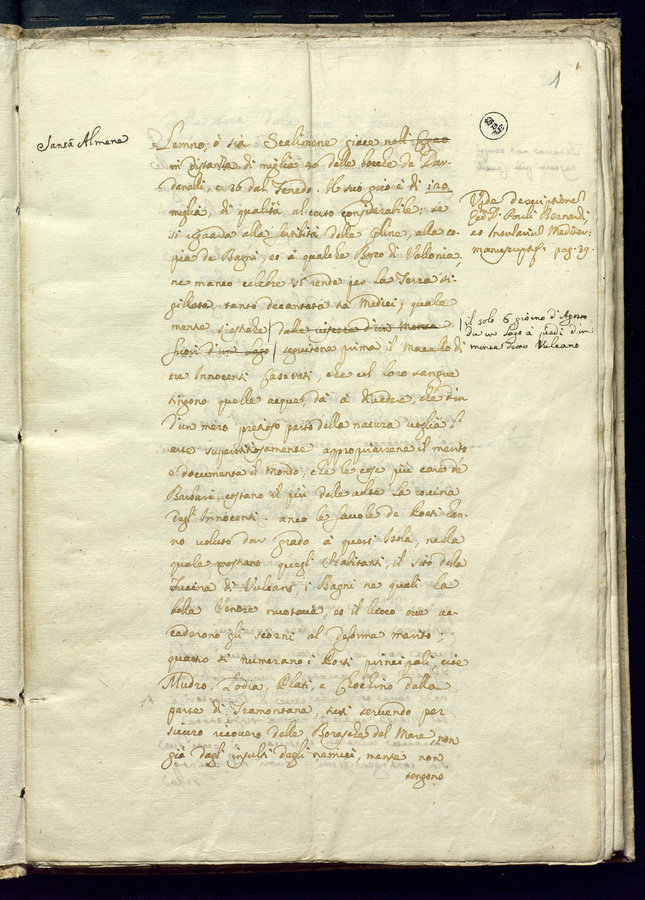 1
Santa Almene
Lemno, ò sia Stalimene giace nell' Egeo
in distanza di miglia 40 dalle bocche de Dar-
danelli, e 30 dal Tenedo. Il suo giro è di 120
miglia, di qualità al certo considerabile; se
si riguarda alla fertilità delle Coline, alla co-
pia de Bagni, et à qualche Bosco di Vallonia,
ne manco celebre si rende per la Terra si-
gillata tanto decantata da Medici, quale
mente s'estrahe dalle viscere d'un Monte
fuori d'un Lago seguitone prima il macello di
tra Innocenti Castrati, che col loro sangue
tingono quelle acque, dà à divedere, che
d'un mero prezioso parto della natura voglia l'
arte superstitiosamente appropriarsene il merito
e documenta il Mondo, che le cose più care de
Barbari costano il più delle volte la rovina
degl' Innocenti. anco le favole de Poeti han-
no voluto dar grado à quest' Isola, nella
quale mostrano quegli Habitanti, il sito della
Fucina di Vulcano, i Bagni ne quali la
bella Venere nuotava, et il luoco ove ac-
caderono gli scorni al deforme marito.
quattro si numerano i Porti principali, cioè
Mudro, Condia, Plati, e Cochino dalla
parte di Tramontana, tutti servendo per
sicuro ricovero delle Borasche del Mare, non
già dagl' insulti degli nemici, mentre non
tengono
Vide descriptione
Pauli Bernardi
et Insulariu Mediter:
manuscript. pag. 39.
il solo 6 giorno d'Agosto
da un Lago à piedi d'un
monte detto Vulcano